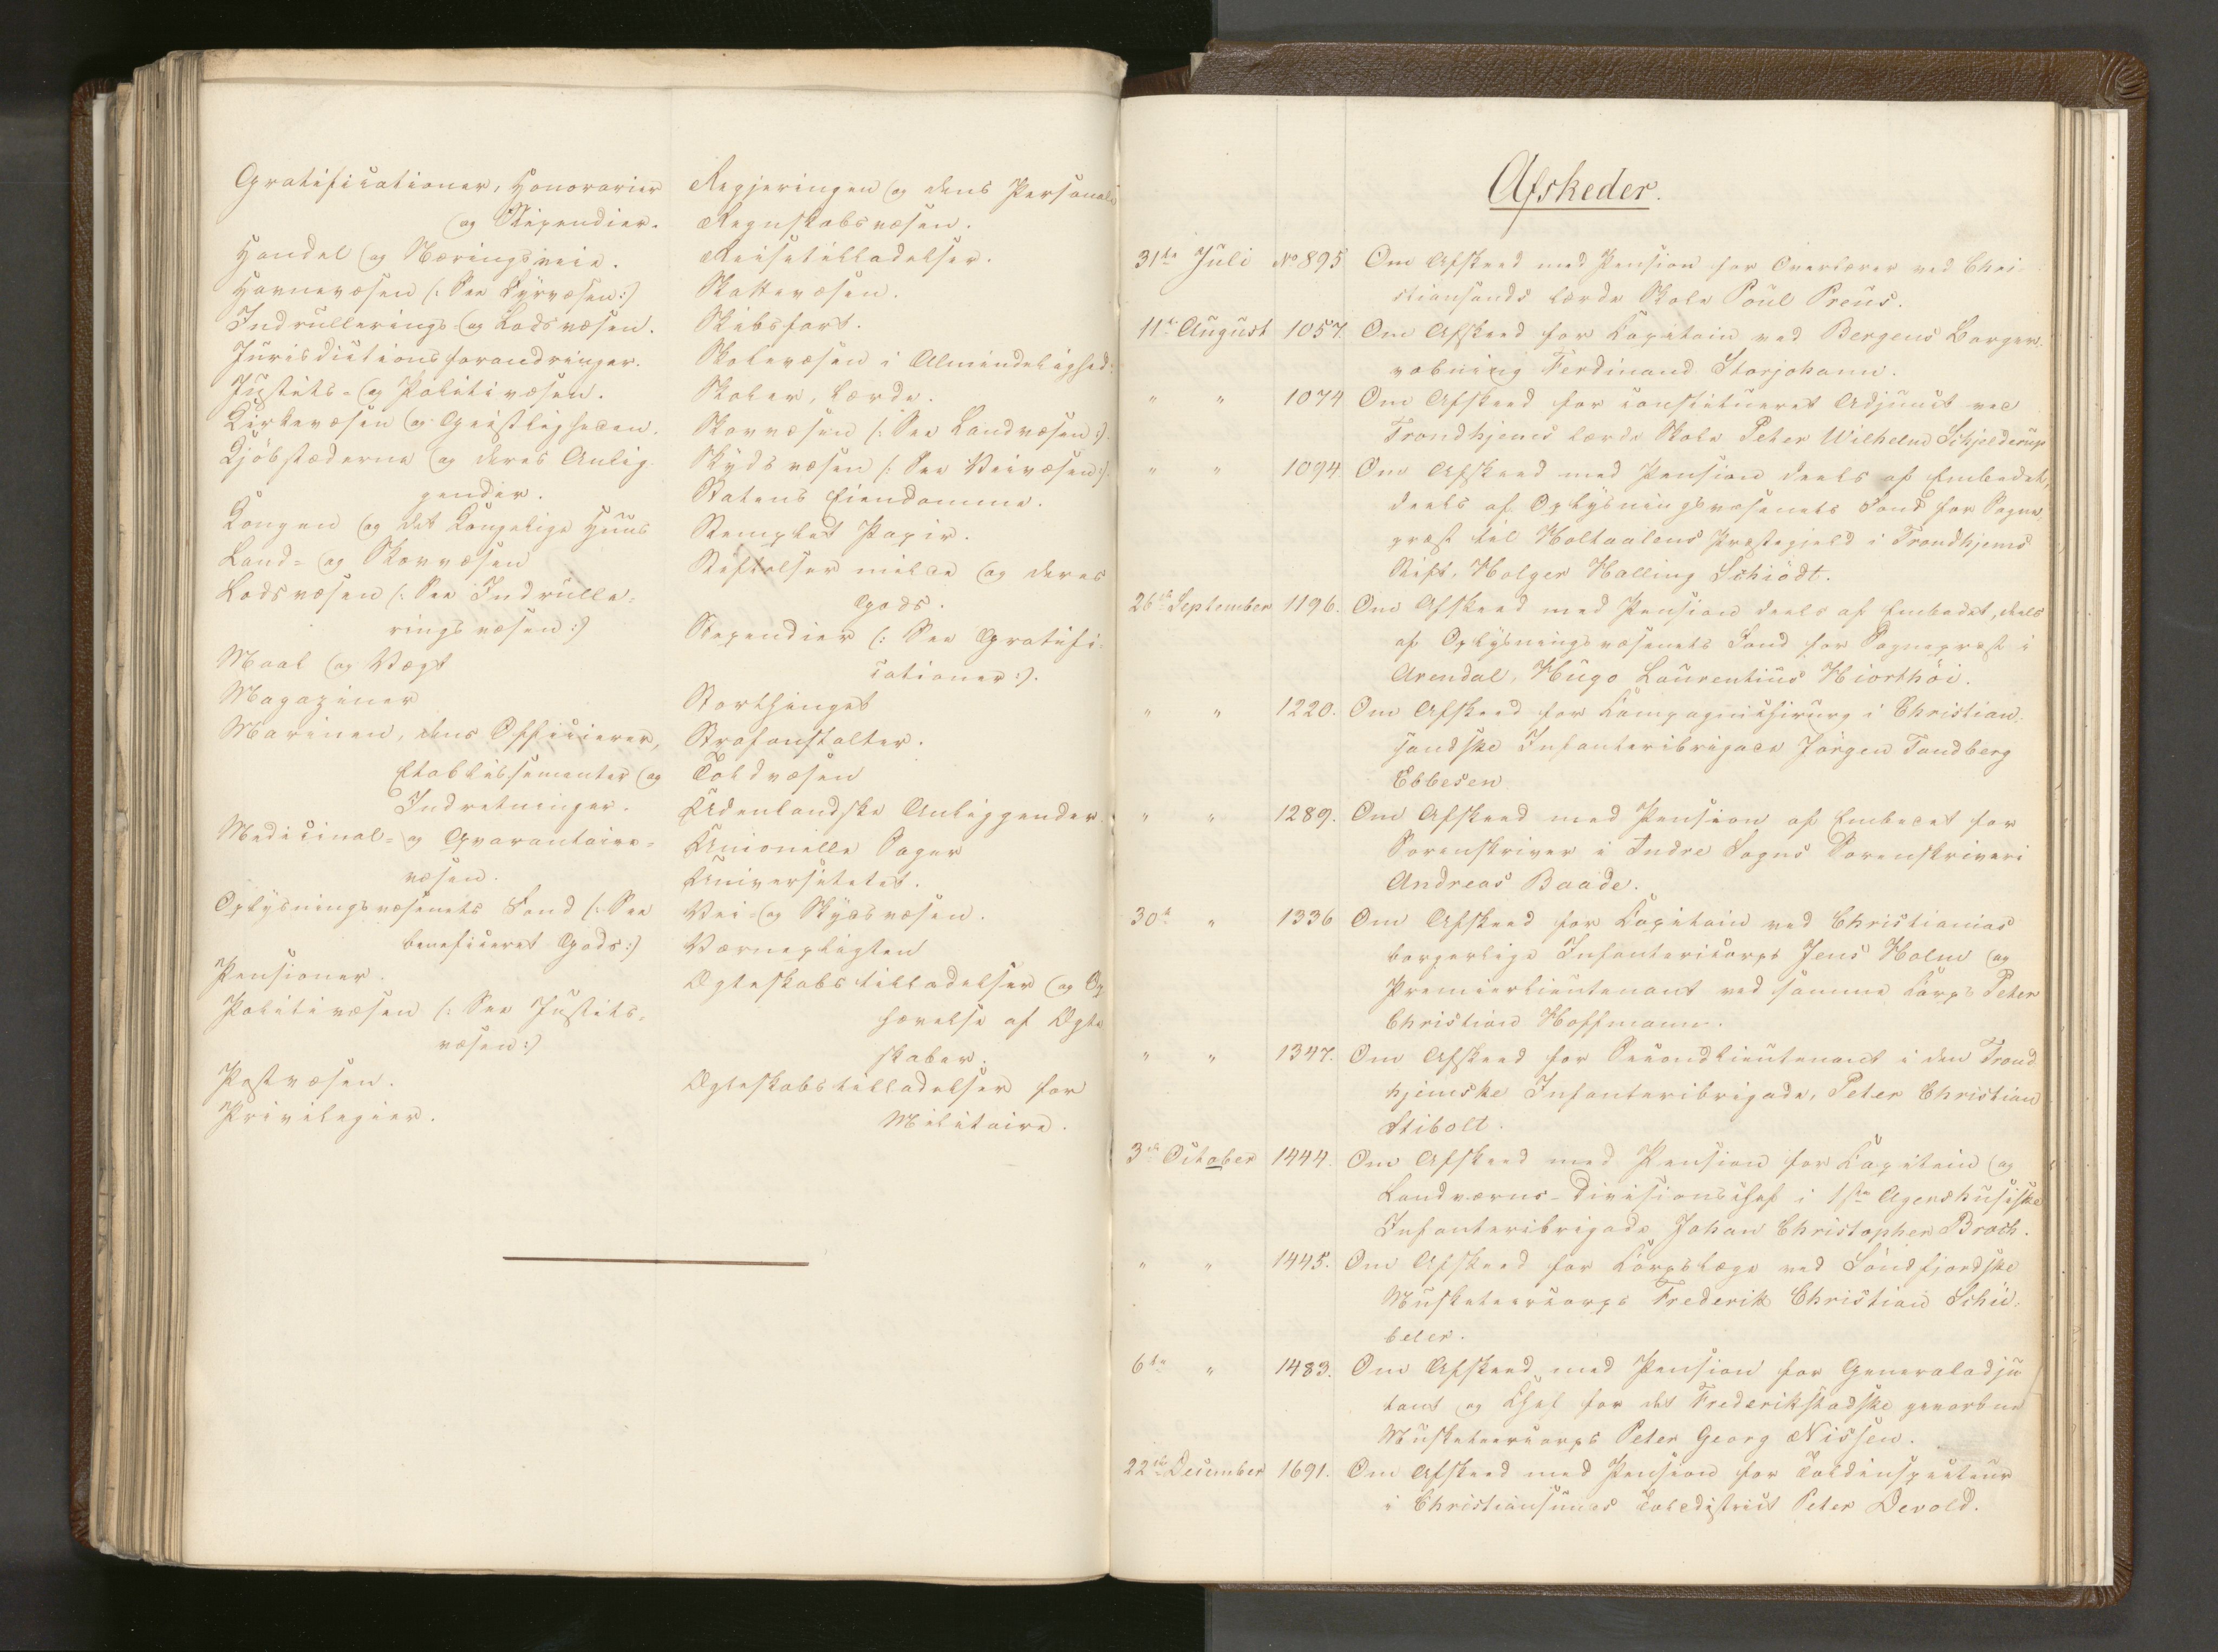 Gratificationer, Honorarier
og Stipendier.
Handel og Næringsveie.
Havnevæsen (: See Fyrvæsen:)
Indrullerings- og Lodsvæsen.
Jurisdictionsforandringer.
Justits- og Politivæsen.
Kirkevæsen og Geistligheden.
Kjöbstæderne og deres Anlig-
gender.
Kongen og det Kongelige Huus
Land- og Skovvæsen
Lodsvæsen (: See Indrulle-
ringsvæsen:)
Maal og Vægt
Magaziner
Marinen, dens Officierer,
Etablissementer og
Indretninger.
Medicinal- og Qvarantaine-
væsen.
Oplysningsvæsenets Fond (: See
beneficeret Gods:)
Pensioner.
Politivæsen (: See Justits-
væsen:)
Postvæsen.
Privilegier.
Regjeringen og dens Personale
Regnskabsvæsen.
Reisetilladelser.
Skattevæsen.
Skibsfart.
Skolevæsen i Almindelighed.
Skoler, lærde.
Skovvæsen (: See Landvæsen:).
Skydsvæsen (: See Veivæsen:).
Statens Eiendomme.
Stemplet Papir.
Stiftelser milde og deres
Gods.
Stipendier (: See Gratifi-
cationer:).
Storthinget
Strafanstalter.
Toldvæsen
Udenlandske Anliggender.
Unionelle Sager
Universitetet.
Vei- og Skydsvæsen.
Værnepligten
Ægteskabstilladelser og Op
hævelse af Ægte
skaber.
Ægteskabstilladelser for
Militaire.
Afskeder.
31te Juli No 895 Om Afskeed med Pension for Overlærer ved Chri-
stiansands lærde Skole Poul Preus.
11te August 1057. Om Afskeed for Capitain ved Bergens Borger-
væbning Ferdinand Storjohann.
" " 1074 Om Afskeed for constitueret Adjunct ved
Trondhjems lærde Skole Peter Wilhelm Schjelderup
" " 1094 Om Afskeed med Pension deels af Embedet,
deels af Oplysningsvæsenets Fond for Sogne-
præst til Holtaalens Præstegjeld i Trondhjems
Stift, Holger Halling Schiödt.
26de September 1196. Om Afskeed med Pension deels af Embedet, deels
af Oplysningsvæsenets Fond for Sognepræst i
Arendal, Hugo Laurentius Hiorthöi.
" " 1220. Om Afskeed for Compagnichirurg i Christian-
sandske Infanteribrigade Jörgen Tandberg
Ebbesen
" " 1289. Om Afskeed med Pension af Embedet for
Sorenskriver i Indre Sogns Sorenskriveri
Andreas Baade.
30te " 1336 Om Afskeed for Capitain ved Christianias
borgerlige Infantericorps Jens Holm og
Premierlieutenant ved samme Corps Peter
Christian Hoffmann.
" " 1347. Om Afskeed for Secondlieutenant i den Trond
hjemske Infanteribrigade, Peter Christian
Stibolt.
3die October 1444. Om Afskeed med Pension for Capitain og
Landværns-Divisionschef i 1ste Agershusiske
Infanteribrigade Johan Christopher Broch.
" " 1445. Om Afskeed for Corpslæge ved Söndfjordske
Musketeercorps Frederik Christian Schü-
beler.
6te " 1483. Om Afskeed med Pension for Generaladju
tant og Chef for det Frederikstadske gevorbne
Musketeercorps Peter Georg Nissen.
22de December 1691. Om Afskeed med Pension for Toldinspecteur
i Christiansunds Tolddistrict Peter Devold.